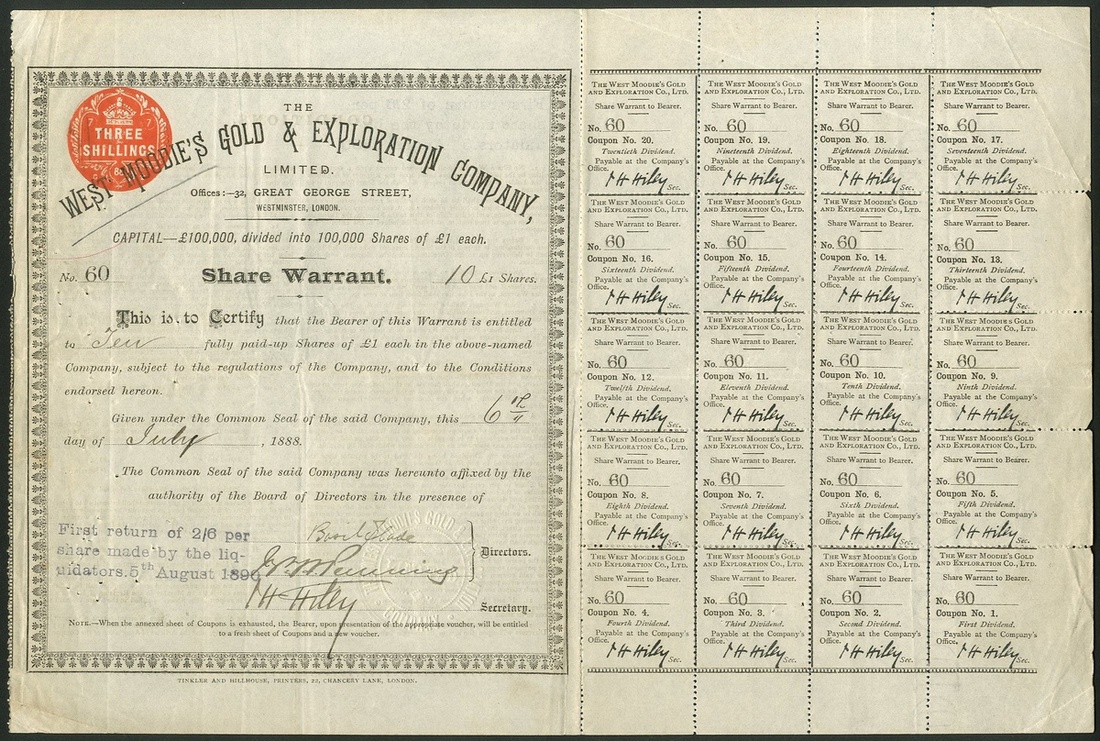 THREE
SHILLINGS
THE
WEST MOODIE'S GOLD & EXPLORATION COMPANY,
LIMITED.
Offices:—32, GREAT GEORGE STREET,
WESTMINSTER, LONDON.
CAPITAL—£100,000, divided into 100,000 Shares of £1 each.
No. 60 Share Warrant. 10 £1 Shares.
This is to Certify that the Bearer of this Warrant is entitled
to Ten fully paid-up Shares of £1 each in the above-named
Company, subject to the regulations of the Company, and to the Conditions
endorsed hereon.
Given under the Common Seal of the said Company, this 6th
day of July, 1888.
The Common Seal of the said Company was hereunto affixed by the
authority of the Board of Directors in the presence of
First return of 2/6 per
share made by the liq-
uidators. 5th August 189
Directors.
H Hiley
Secretary.
NOTE.—When the annexed sheet of Coupons is exhausted, the Bearer, upon presentation of the appropriate voucher, will be entitled
to a fresh sheet of Coupons and a new voucher.
TINKLER AND HILLHOUSE, PRINTERS, 22, CHANCERY LANE, LONDON.
THE WEST MOODIE'S GOLD
AND EXPLORATION CO., LTD.
Share Warrant to Bearer.
No. 60
Coupon No. 20.
Twentieth Dividend.
Payable at the Company's
Office.
H Hiley Sec.
THE WEST MOODIE'S GOLD
AND EXPLORATION CO., LTD.
Share Warrant to Bearer.
No. 60
Coupon No. 19.
Nineteenth Dividend.
Payable at the Company's
Office.
H Hiley Sec.
THE WEST MOODIE'S GOLD
AND EXPLORATION CO., LTD.
Share Warrant to Bearer.
No. 60
Coupon No. 18.
Eighteenth Dividend.
Payable at the Company's
Office.
H Hiley Sec.
THE WEST MOODIE'S GOLD
AND EXPLORATION CO., LTD.
Share Warrant to Bearer.
No. 60
Coupon No. 17.
Seventeenth Dividend.
Payable at the Company's
Office.
H Hiley Sec.
THE WEST MOODIE'S GOLD
AND EXPLORATION CO., LTD.
Share Warrant to Bearer.
No. 60
Coupon No. 16.
Sixteenth Dividend.
Payable at the Company's
Office.
H Hiley Sec.
THE WEST MOODIE'S GOLD
AND EXPLORATION CO., LTD.
Share Warrant to Bearer.
No. 60
Coupon No. 15.
Fifteenth Dividend.
Payable at the Company's
Office.
H Hiley Sec.
THE WEST MOODIE'S GOLD
AND EXPLORATION CO., LTD.
Share Warrant to Bearer.
No. 60
Coupon No. 14.
Fourteenth Dividend.
Payable at the Company's
Office.
H Hiley Sec.
THE WEST MOODIE'S GOLD
AND EXPLORATION CO., LTD.
Share Warrant to Bearer.
No. 60
Coupon No. 13.
Thirteenth Dividend.
Payable at the Company's
Office.
H Hiley Sec.
THE WEST MOODIE'S GOLD
AND EXPLORATION CO., LTD.
Share Warrant to Bearer.
No. 60
Coupon No. 12.
Twelfth Dividend.
Payable at the Company's
Office.
H Hiley Sec.
THE WEST MOODIE'S GOLD
AND EXPLORATION CO., LTD.
Share Warrant to Bearer.
No. 60
Coupon No. 11.
Eleventh Dividend.
Payable at the Company's
Office.
H Hiley Sec.
THE WEST MOODIE'S GOLD
AND EXPLORATION CO., LTD.
Share Warrant to Bearer.
No. 60
Coupon No. 10.
Tenth Dividend.
Payable at the Company's
Office.
H Hiley Sec.
THE WEST MOODIE'S GOLD
AND EXPLORATION CO., LTD.
Share Warrant to Bearer.
No. 60
Coupon No. 9.
Ninth Dividend.
Payable at the Company's
Office.
H Hiley Sec.
THE WEST MOODIE'S GOLD
AND EXPLORATION CO., LTD.
Share Warrant to Bearer.
No. 60
Coupon No. 8.
Eighth Dividend.
Payable at the Company's
Office.
H Hiley Sec.
THE WEST MOODIE'S GOLD
AND EXPLORATION CO., LTD.
Share Warrant to Bearer.
No. 60
Coupon No. 7.
Seventh Dividend.
Payable at the Company's
Office.
H Hiley Sec.
THE WEST MOODIE'S GOLD
AND EXPLORATION CO., LTD.
Share Warrant to Bearer.
No. 60
Coupon No. 6.
Sixth Dividend.
Payable at the Company's
Office.
H Hiley Sec.
THE WEST MOODIE'S GOLD
AND EXPLORATION CO., LTD.
Share Warrant to Bearer.
No. 60
Coupon No. 5.
Fifth Dividend.
Payable at the Company's
Office.
H Hiley Sec.
THE WEST MOODIE'S GOLD
AND EXPLORATION CO., LTD.
Share Warrant to Bearer.
No. 60
Coupon No. 4.
Fourth Dividend.
Payable at the Company's
Office.
H Hiley Sec.
THE WEST MOODIE'S GOLD
AND EXPLORATION CO., LTD.
Share Warrant to Bearer.
No. 60
Coupon No. 3.
Third Dividend.
Payable at the Company's
Office.
H Hiley Sec.
THE WEST MOODIE'S GOLD
AND EXPLORATION CO., LTD.
Share Warrant to Bearer.
No. 60
Coupon No. 2.
Second Dividend.
Payable at the Company's
Office.
H Hiley Sec.
THE WEST MOODIE'S GOLD
AND EXPLORATION CO., LTD.
Share Warrant to Bearer.
No. 60
Coupon No. 1.
First Dividend.
Payable at the Company's
Office.
H Hiley Sec.